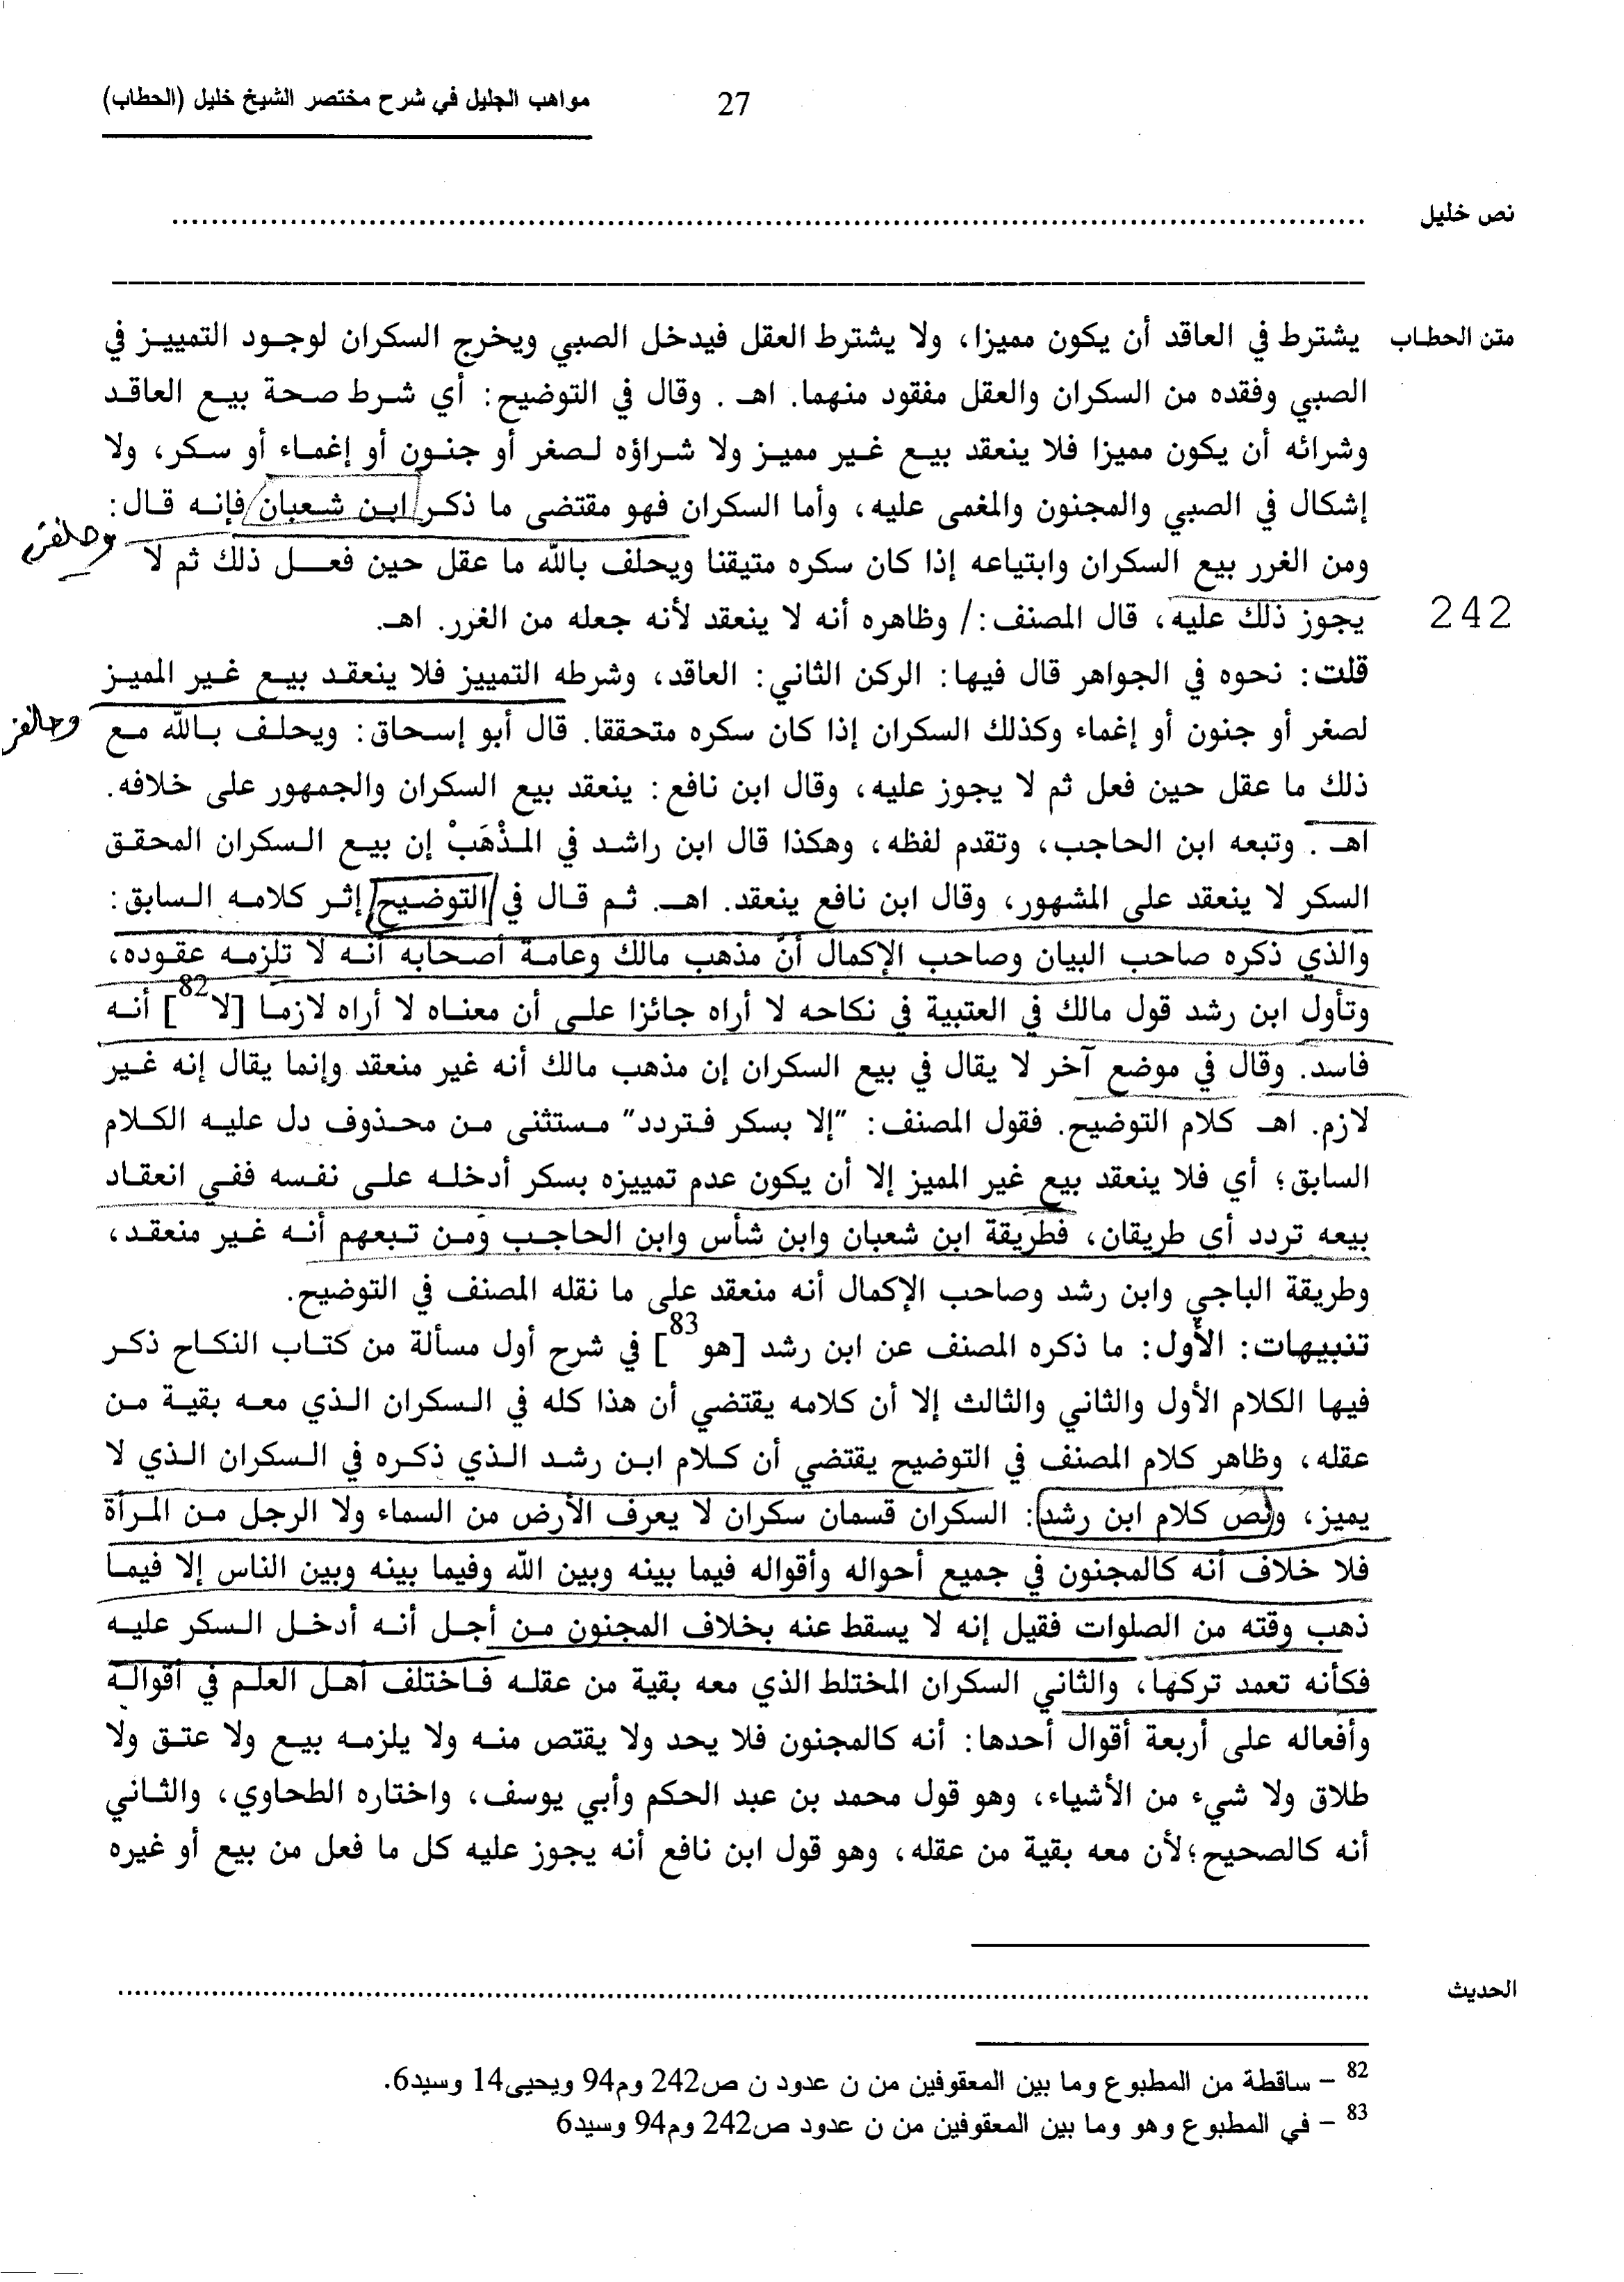 مواهب الجليل في شرح مختصر الشيخ خليل (الحطاب)
27
نص خليل ................................
متن الحطاب يشترط في العاقد أن يكون مميزا، ولا يشترط العقل فيدخل الصبي ويخرج السكران لوجود التمييز في
الصبي وفقده من السكران والعقل مفقود منهما. اهـ . وقال في التوضيح: أي شرط صحة بيع العاقد
وشرائه أن يكون مميزا فلا ينعقد بيع غير مميز ولا شراؤه لصغر أو جنون أو إغماء أو سكر، ولا
إشكال في الصبي والمجنون والمغمى عليه، وأما السكران فهو مقتضى ما ذكر ابن شعبان فإنه قال:
ومن الغرر بيع السكران وابتياعه إذا كان سكره متيقنا ويحلف بالله ما عقل حين فعل ذلك ثم لا
242 يجوز ذلك عليه، قال المصنف:/ وظاهره أنه لا ينعقد لأنه جعله من الغرر. اهـ.
قلت: نحوه في الجواهر قال فيها: الركن الثاني: العاقد، وشرطه التمييز فلا ينعقد بيع غير المميز
لصغر أو جنون أو إغماء وكذلك السكران إذا كان سكره متحققا. قال أبو إسحاق: ويحلف بالله مع
ذلك ما عقل حين فعل ثم لا يجوز عليه، وقال ابن نافع: ينعقد بيع السكران والجمهور على خلافه.
اهـ . وتبعه ابن الحاجب، وتقدم لفظه، وهكذا قال ابن راشد في المذْهَبْ إن بيع السكران المحقق
السكر لا ينعقد على المشهور، وقال ابن نافع ينعقد. اهـ. ثم قال في التوضيح إثر كلامه السابق:
والذي ذكره صاحب البيان وصاحب الإكمال أن مذهب مالك وعامة أصحابه أنه لا تلزمه عقوده،
وتأول ابن رشد قول مالك في العتبية في نكاحه لا أراه جائزا على أن معناه لا أراه لازما [لا82] أنه
فاسد. وقال في موضع آخر لا يقال في بيع السكران إن مذهب مالك أنه غير منعقد وإنما يقال إنه غير
لازم. اهـ كلام التوضيح. فقول المصنف: "إلا بسكر فتردد" مستثنى من محذوف دل عليه الكلام
السابق؛ أي فلا ينعقد بيع غير المميز إلا أن يكون عدم تمييزه بسكر أدخله على نفسه ففي انعقاد
بيعه تردد أي طريقان، فطريقة ابن شعبان وابن شأس وابن الحاجب ومن تبعهم أنه غير منعقد،
وطريقة الباجي وابن رشد وصاحب الإكمال أنه منعقد على ما نقله المصنف في التوضيح.
تنبيهات: الأول: ما ذكره المصنف عن ابن رشد [هو83] في شرح أول مسألة من كتاب النكاح ذكر
فيها الكلام الأول والثاني والثالث إلا أن كلامه يقتضي أن هذا كله في السكران الذي معه بقية من
عقله، وظاهر كلام المصنف في التوضيح يقتضي أن كلام ابن رشد الذي ذكره في السكران الذي لا
يميز، ونص كلام ابن رشد: السكران قسمان سكران لا يعرف الأرض من السماء ولا الرجل من المرأة
فلا خلاف أنه كالمجنون في جميع أحواله وأقواله فيما بينه وبين الله وفيما بينه وبين الناس إلا فيما
ذهب وقته من الصلوات فقيل إنه لا يسقط عنه بخلاف المجنون من أجل أنه أدخل السكر عليه
فكأنه تعمد تركها، والثاني السكران المختلط الذي معه بقية من عقله فاختلف أهل العلم في أقواله
وأفعاله على أربعة أقوال أحدها: أنه كالمجنون فلا يحد ولا يقتص منه ولا يلزمه بيع ولا عتق ولا
طلاق ولا شيء من الأشياء، وهو قول محمد بن عبد الحكم وأبي يوسف، واختاره الطحاوي، والثاني
أنه كالصحيح؛لأن معه بقية من عقله، وهو قول ابن نافع أنه يجوز عليه كل ما فعل من بيع أو غيره
الحديث ................................
82 – ساقطة من المطبوع وما بين المعقوفين من ن عدود ن ص242 وم94 ويحيى14 وسيد6.
83 – في المطبوع وهو وما بين المعقوفين من ن عدود ص242 وم94 وسيد6